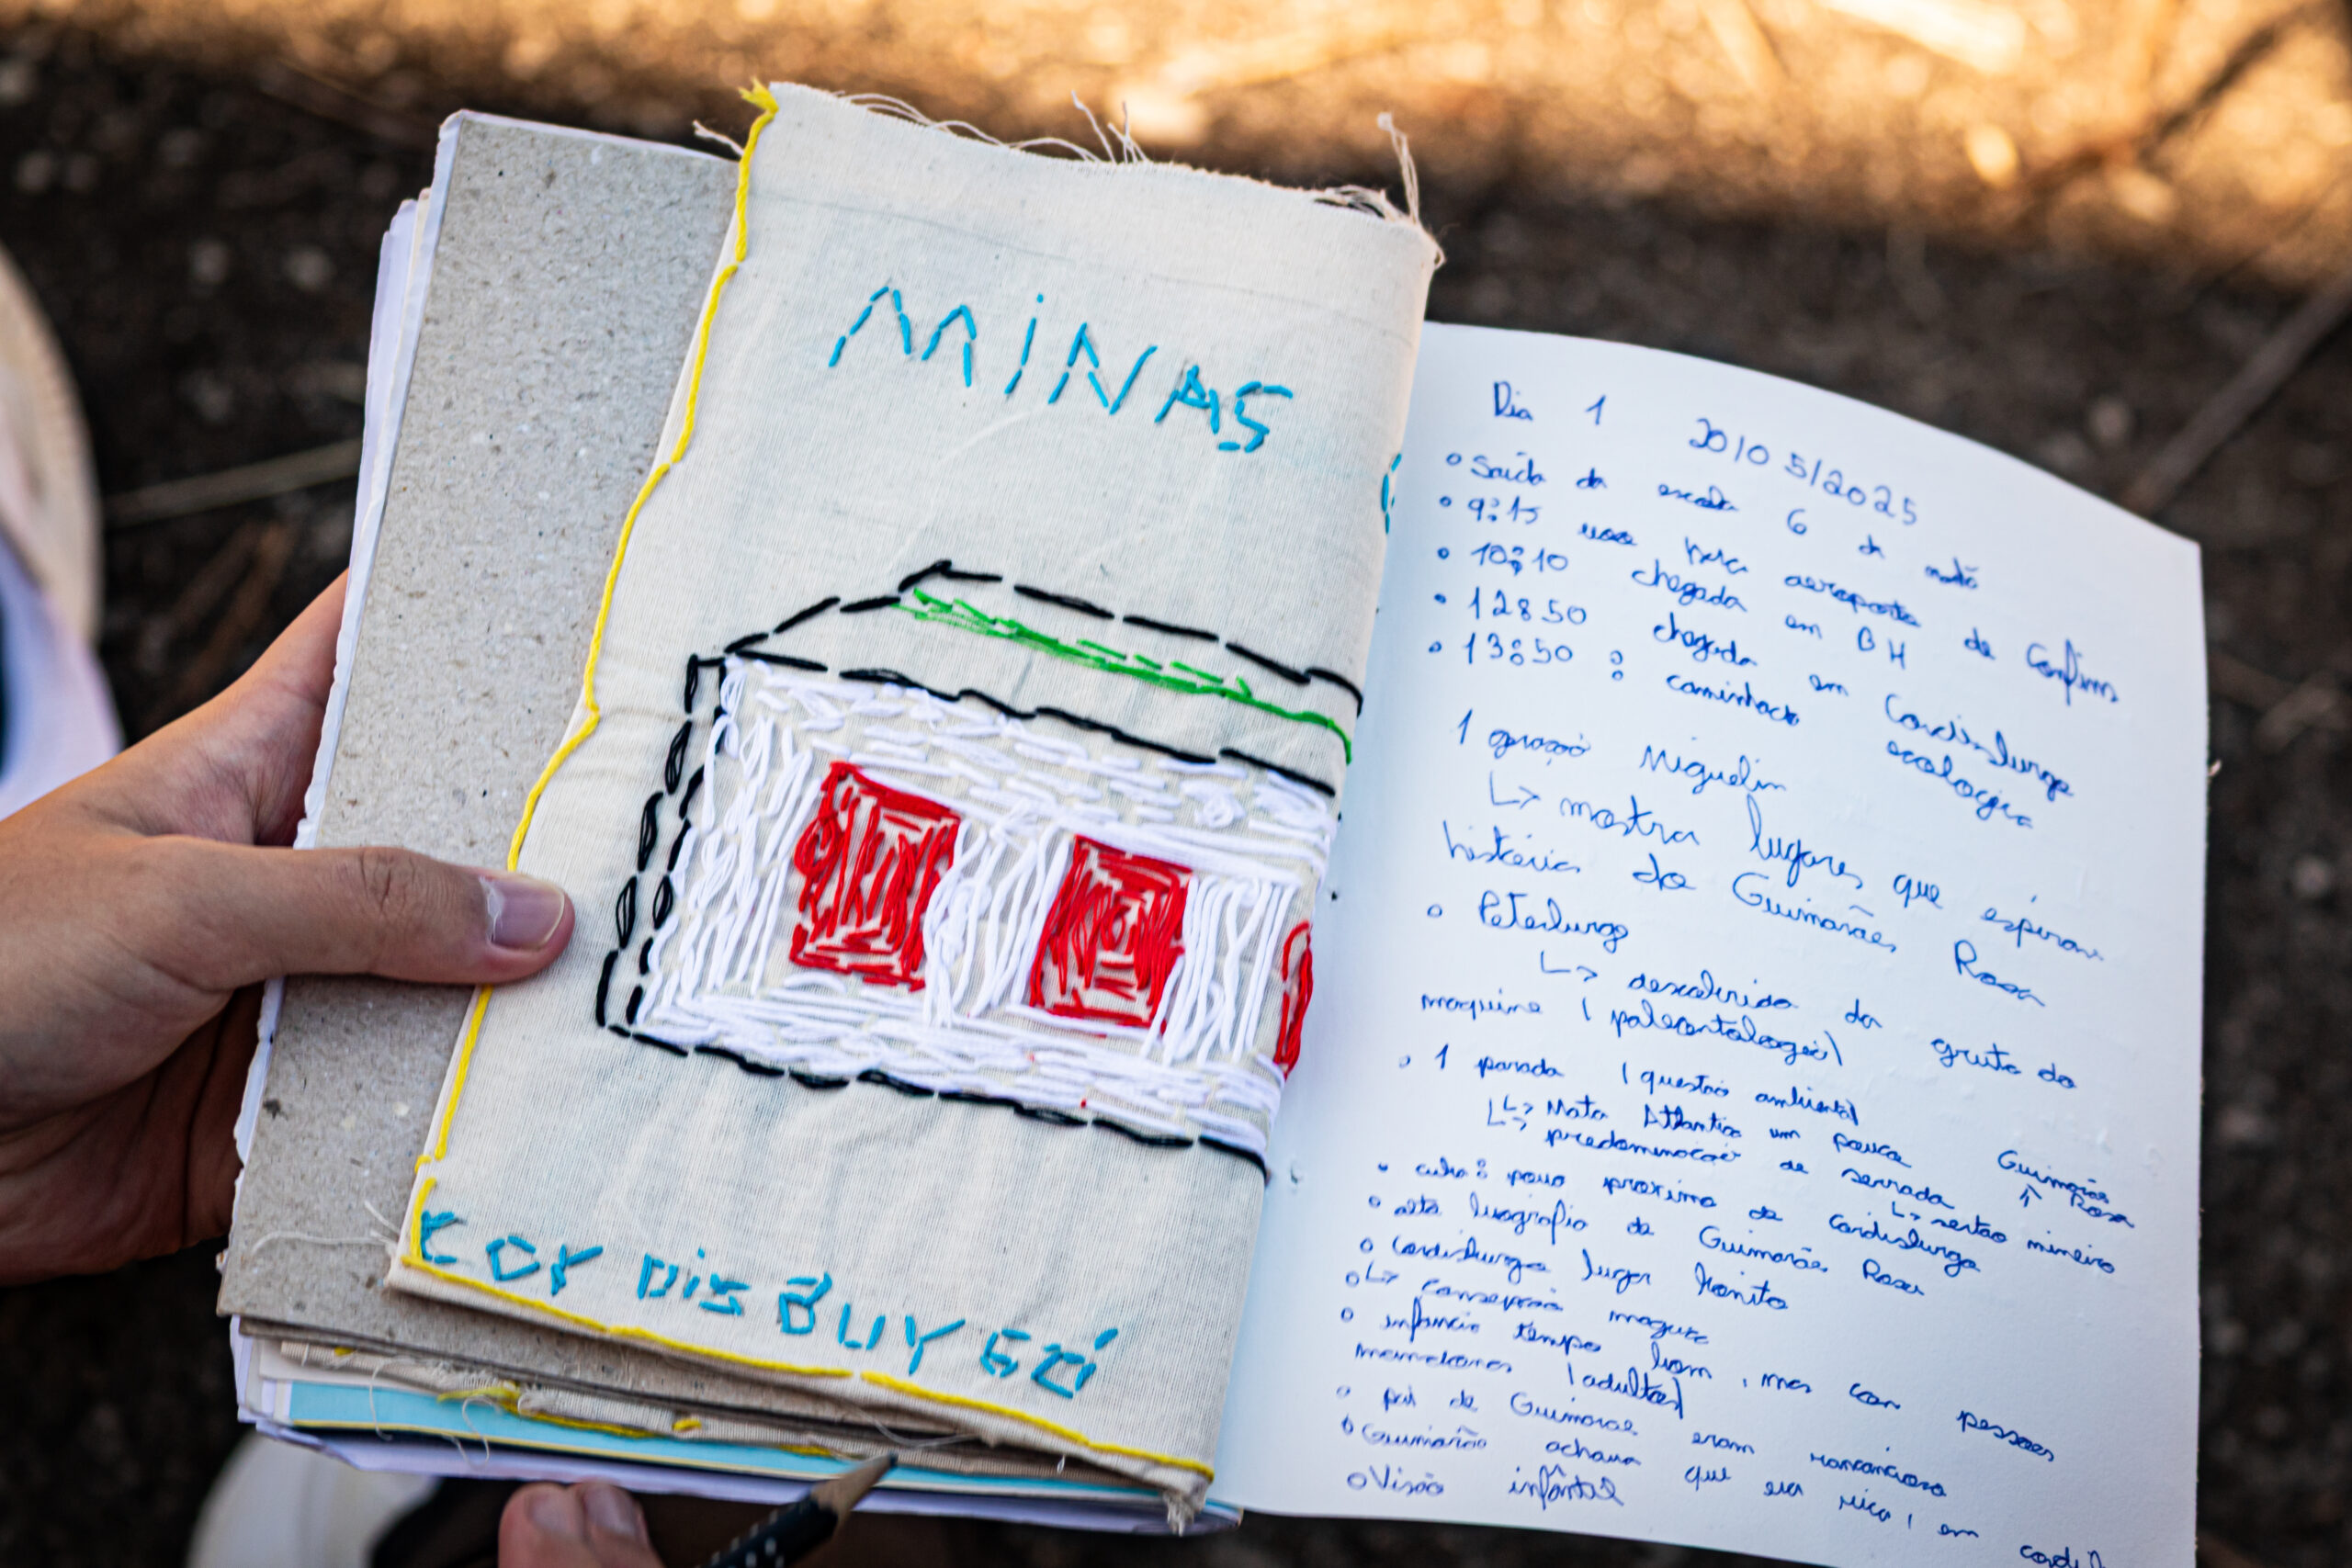 MINAS
CORDISBURGO
Dia 1 20/05/2025
Saída da escola 6 da manhã
9:15 voo para aeroporto de Confins
10:10 chegada em BH
12:50 chegada em Cordisburgo
13:50 : caminhada ecologica
1 geração Miguelin
↳ mostra lugares que espiram
história do Guimarães Rosa
Peterlungo
↳ descobrido da gruta do
maquine (paleontologia)
1 parada (questão ambiental)
↳ Mata Atlantica um pouca
↳ predominação de serrado
Guimarães Rosa
↑
↳ sertão mineiro
cuba: povo proximo de Cordisburgo
alta biografia de Guimarães Rosa
Cordisburgo lugar bonito
↳
infancia tempo bom, mas com pessoas
(adultos)
pai de Guimarães eram
Guimarães achava que era rico, em
Visão infântil